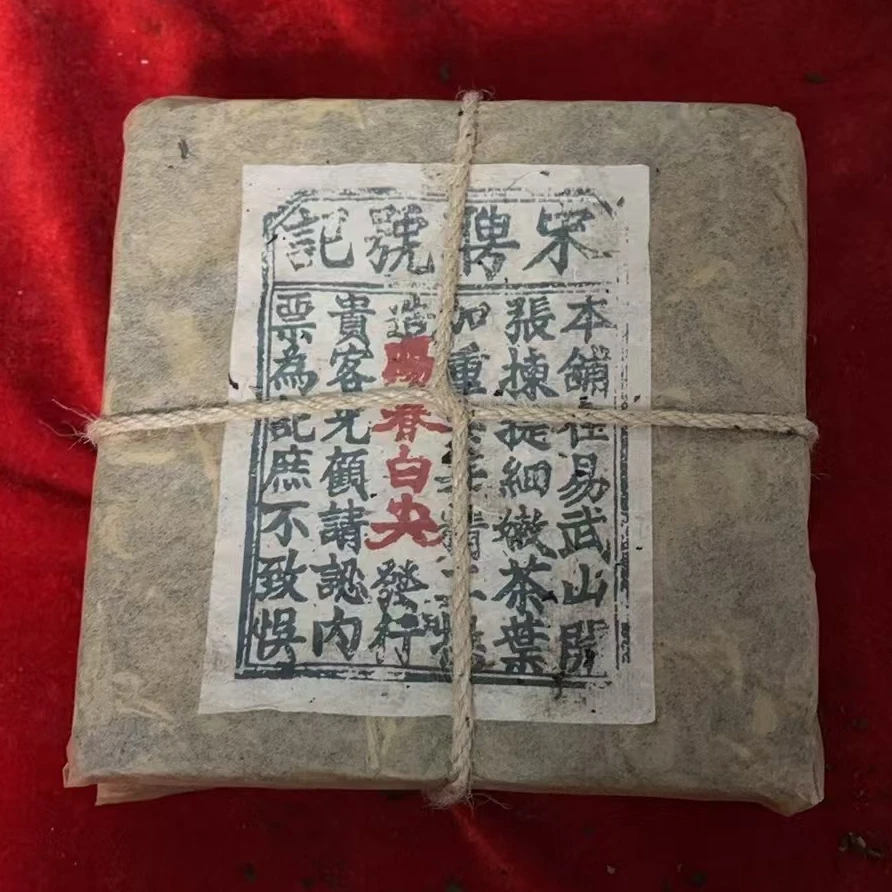 宋聘號記
本舖在易武山開
張揀提細嫩茶葉
加重精工
造陽春白央發行
貴客光顧請認內
票為記庶不致悞